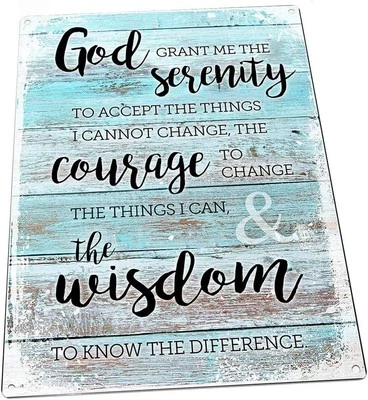 God GRANT ME THE
serenity
TO ACCEPT THE THINGS
I CANNOT CHANGE, THE
courage TO
CHANGE
THE THINGS I CAN, &
the
wisdom
TO KNOW THE DIFFERENCE.